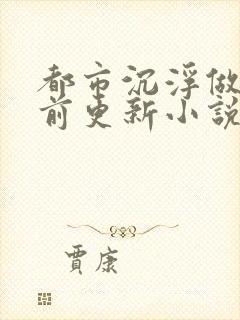 都市沉浮做
前更新小說
賈康